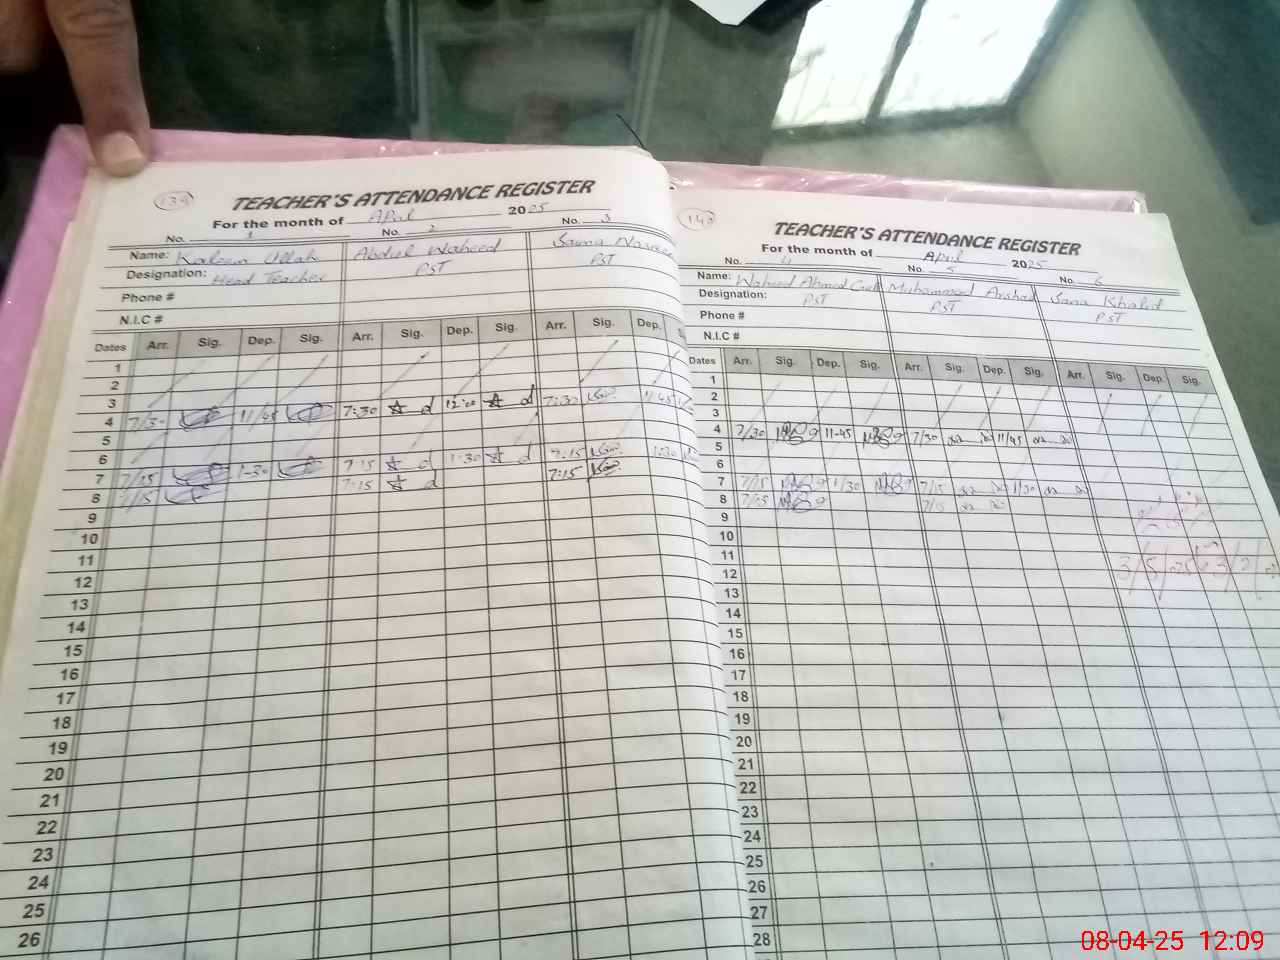 139
TEACHER'S ATTENDANCE REGISTER
For the month of April 2025
No. 1 No. 2 No. 3
Name: Kaleem Ullah Abdul Waheed Saima
Designation: Head Teacher PST PST
Phone #
N.I.C #
Dates Arr. Sig. Dep. Sig. Arr. Sig. Dep. Sig. Arr. Sig. Dep.
1
2
3
4 7/30 11/45 7:30 12:00 7:30 11:45
5
6
7 7/15 1-30 7:15 1:30 7:15 1:30
8 7/15 7:15 7:15
9
10
11
12
13
14
15
16
17
18
19
20
21
22
23
24
25
26
140
TEACHER'S ATTENDANCE REGISTER
For the month of April 2025
No. 4 No. 5 No. 6
Name: Waheed Ahmad Muhammad Arshad Sana Khalid
Designation: PST PST PST
Phone #
N.I.C #
Dates Arr. Sig. Dep. Sig. Arr. Sig. Dep. Sig. Arr. Sig. Dep. Sig.
1
2
3
4 7/30 11-45 7/30 11/45
5
6
7 7/15 1/30 7/15 1/30
8 7/15 7/15
9
10
11
12
13
14
15
16
17
18
19
20
21
22
23
24
25
26
27
28
08-04-25 12:09